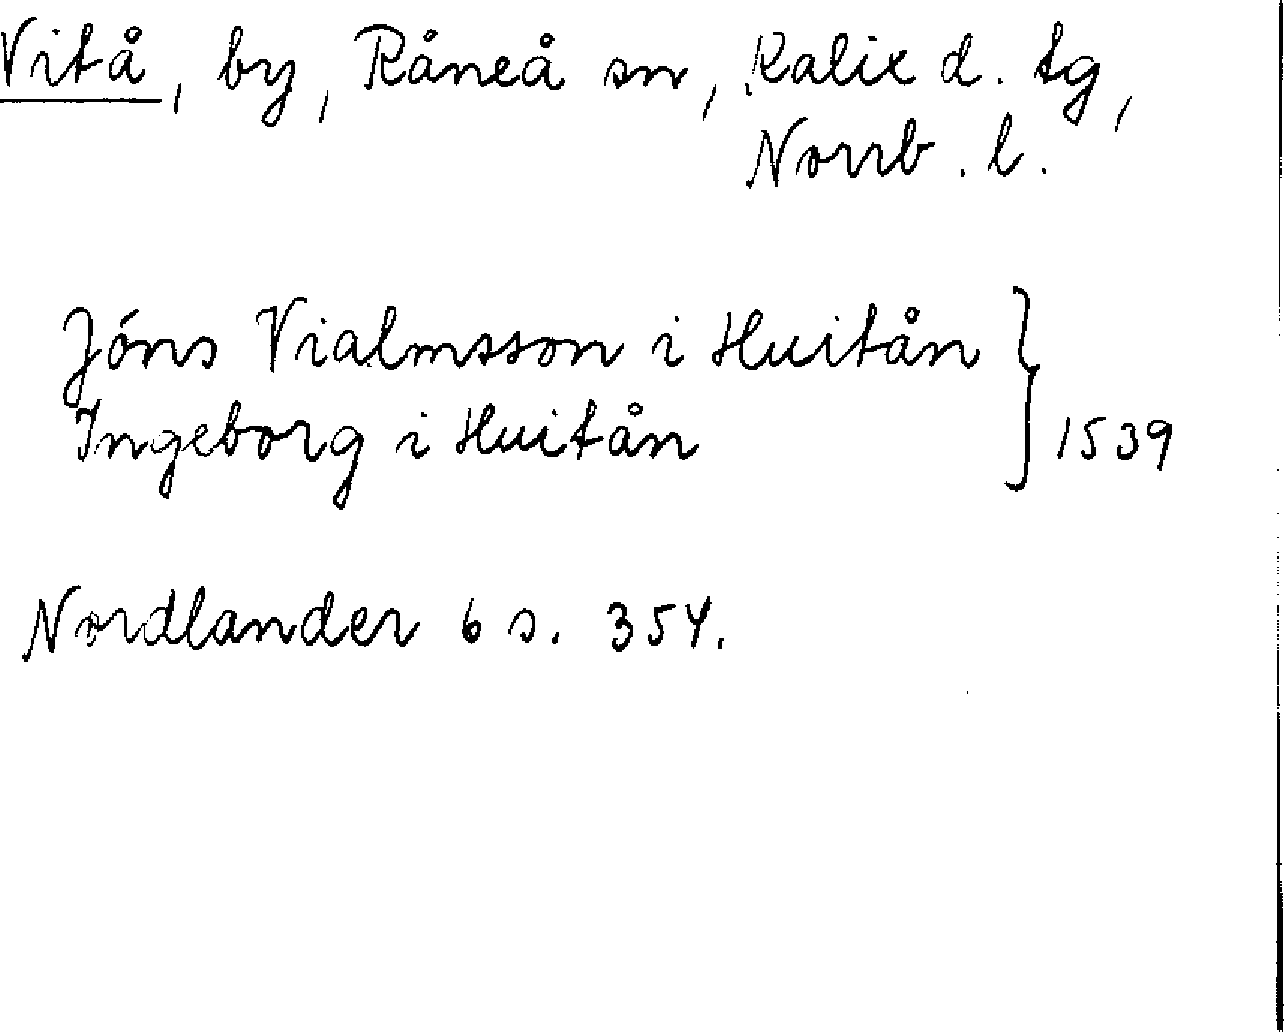 Vitå, by, Råneå sn, Kalix d. tg,
Norrb. l.
Jóns Vialmsson i Huitån } 1539
Ingeborg i Huitån
Nordlander 6 s. 354.